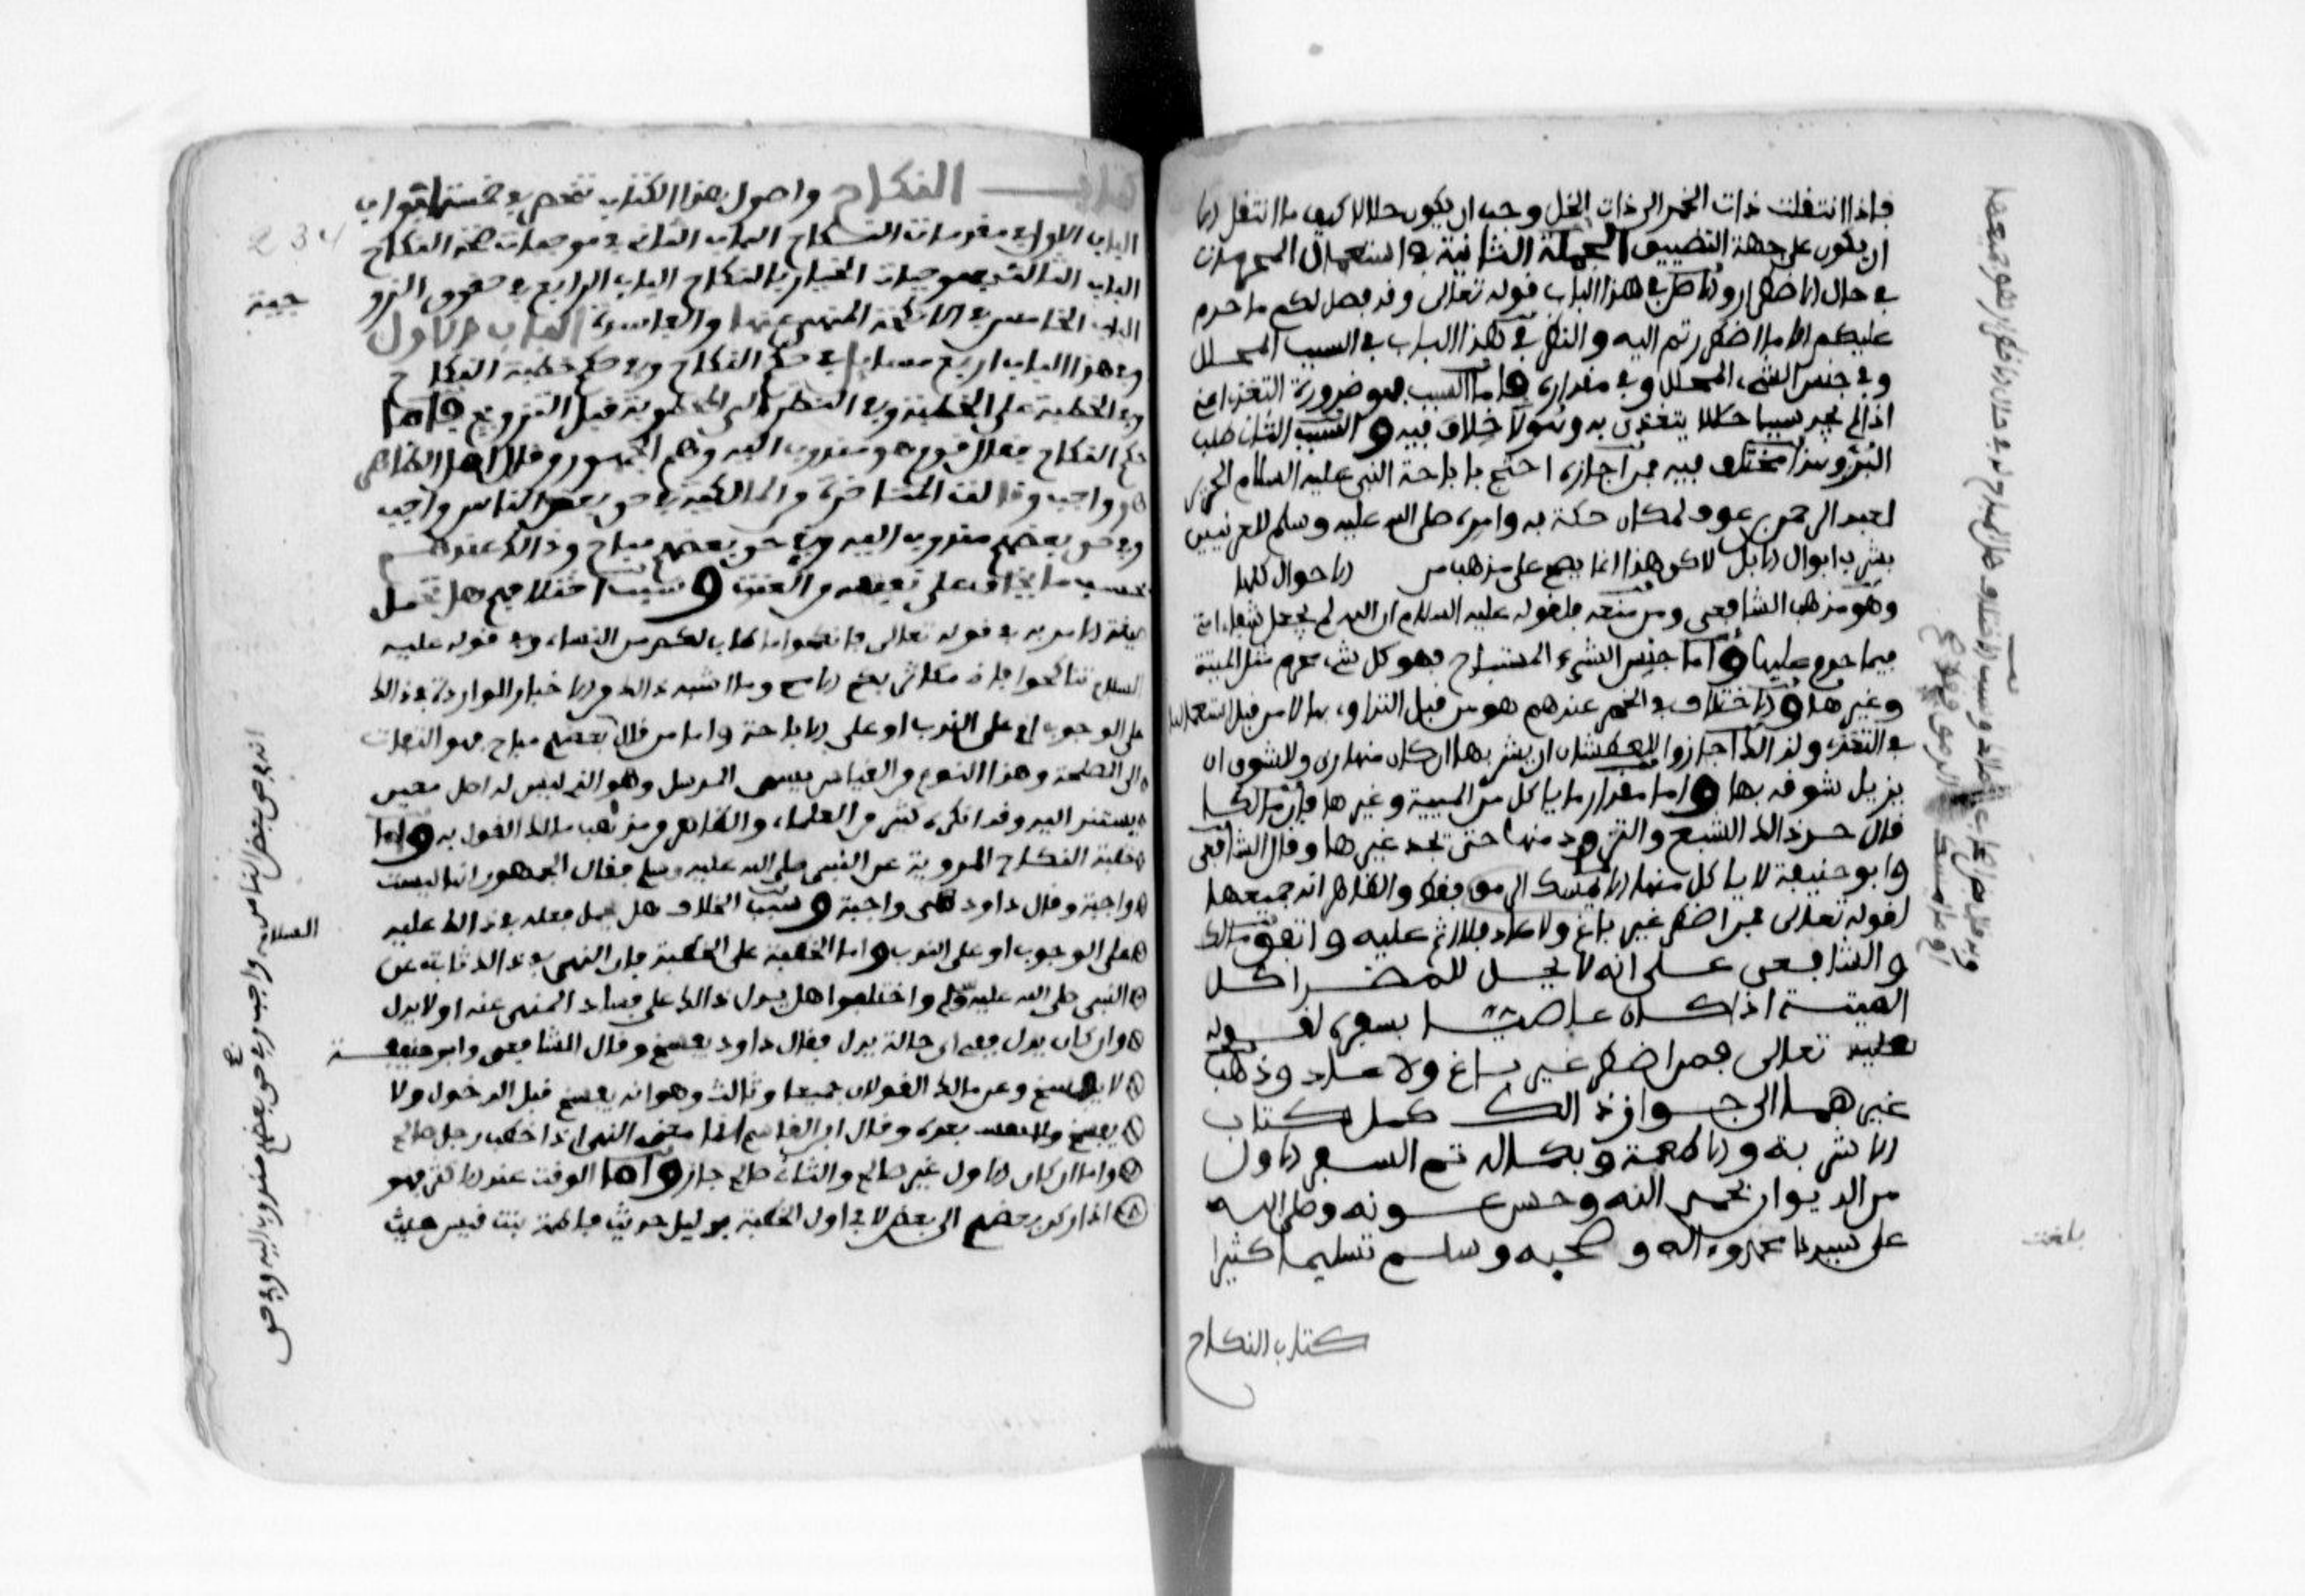 فإذا انتقلت ذات الخمر الى ذات الخل وجب ان يكون حلالا كيف ما انتقل الا
ان يكون على جهة التضييق الجملة الثانية في استعمال المحرمات
في حال الاضطرار والاصل في هذا الباب قوله تعالى وقد فصل لكم ما حرم
عليكم الا ما اضطررتم اليه والنظر في هذا الباب في السبب المحلل
وفي جنس الشيء المحلل وفي مقداره فاما السبب فهو ضرورة التغذي اعني
اذا لم يجد سببا حلالا يتغذى به وهو لا خلاف فيه والسبب الثاني طلب
البرء وهذا مختلف فيه فمن اجازه احتج باباحة النبي عليه السلام الحرير
لعبد الرحمن بن عوف لمكان حكة به وامره صلى الله عليه وسلم للعرنيين
بشرب ابوال الابل لاكن هذا انما يصح على مذهب من الاحوال كلها
وهو مذهب الشافعي ومن منعه فلقوله عليه السلام ان الله لم يجعل شفاء امتي
فيما حرم عليها واما جنس الشيء المستباح فهو كل شيء محرم مثل الميتة
وغيرها والاختلاف في الخمر عندهم هو من قبل التداوي بها لا من قبل استعمالها
في التغذي ولذالك اجازوا للعطشان ان يشربها ان كان منها ري وللشرق ان
يزيل شرقه بها واما مقدار ما ياكل من الميتة وغيرها فإن مالكا
قال حد ذالك الشبع والتزود منها حتى يجد غيرها وقال الشافعي
وابو حنيفة لا ياكل منها الا ما يمسك الرمق فقط والظاهر انه جميعها
لقوله تعالى فمن اضطر غير باغ ولا عاد فلا اثم عليه واتفق مالك
والشافعي على انه لا يحل للمضطر اكل
الميتة اذا كان عاصيا بسفره لقوله
تعالى فمن اضطر غير باغ ولا عاد وذهب
غيرهما الى جواز ذالك كمل كتاب
الاشربة والاطعمة وبكماله تم السفر الاول
من الديوان بحمد الله وحسن عونه وصلى الله
على سيدنا محمد وءاله وصحبه وسلم تسليما كثيرا
كتاب النكاح
بلغت
كتاب النكاح واصول هذا الكتاب تنحصر في خمسة ابواب
الباب الاول في مقدمات النكاح الباب الثاني في موجبات صحة النكاح
الباب الثالث في موجبات الخيار في النكاح الباب الرابع في حقوق الزو
جية
234
الباب الخامس في الانكحة المنهي عنها والفاسدة الباب الاول
وفي هذا الباب اربع مسائل في حكم النكاح وفي حكم خطبة النكاح
وفي الخطبة على الخطبة وفي النظر الى المخطوبة قبل التزويج فاما
حكم النكاح فقال قوم هو مندوب اليه وهم الجمهور وقال اهل الظاهر
هو واجب وقالت المتاخرة من المالكية في حق بعض الناس واجب
وفي حق بعضهم مندوب اليه وفي حق بعضهم مباح وذالك عندهم
بحسب ما يخاف على نفسه من العنت وسبب اختلافهم هل تحمل
صيغة الامر به في قوله تعالى فانكحوا ما طاب لكم من النساء وفي قوله عليه
السلام تناكحوا فإني مكاثر بكم الامم وما اشبه ذالك من الاخبار الواردة في ذالك
على الوجوب او على الندب او على الاباحة واما من قال بعضهم مباح فهو التفات
الى المصلحة وهذا النوع من القياس يسمى المرسل وهو الذي ليس له اصل معين
يستند اليه وقد انكره كثير من العلماء والظاهر من مذهب مالك القول به واما
خطبة النكاح المروية عن النبي صلى الله عليه وسلم فقال الجمهور انها ليست
واجبة وقال داود هي واجبة وسبب الخلاف هل يحمل فعله في ذالك عليه
السلام
على الوجوب او على الندب واما الخطبة على الخطبة فإن النهي في ذالك ثابت عن
النبي صلى الله عليه وسلم واختلفوا هل يدل ذالك على فساد المنهي عنه او لا يدل
وان كان يدل ففي اي حالة يدل فقال داود يفسخ وقال الشافعي وابو حنيفة
لا يفسخ وعن مالك القولان جميعا وثالث وهو انه يفسخ قبل الدخول ولا
يفسخ بعده وقال ابن القاسم انما معنى النهي اذا خطب رجل صالح
واما ان كان الاول غير صالح والثاني صالح جاز واما الوقت عند الاكثر فهو
اذا ركن بعضهم الى بعض لا في اول الخطبة بدليل حديث فاطمة بنت قيس حيث